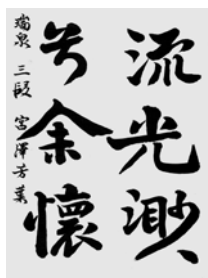 流光渺
兮余懐
瑞泉 三段 宮澤芳